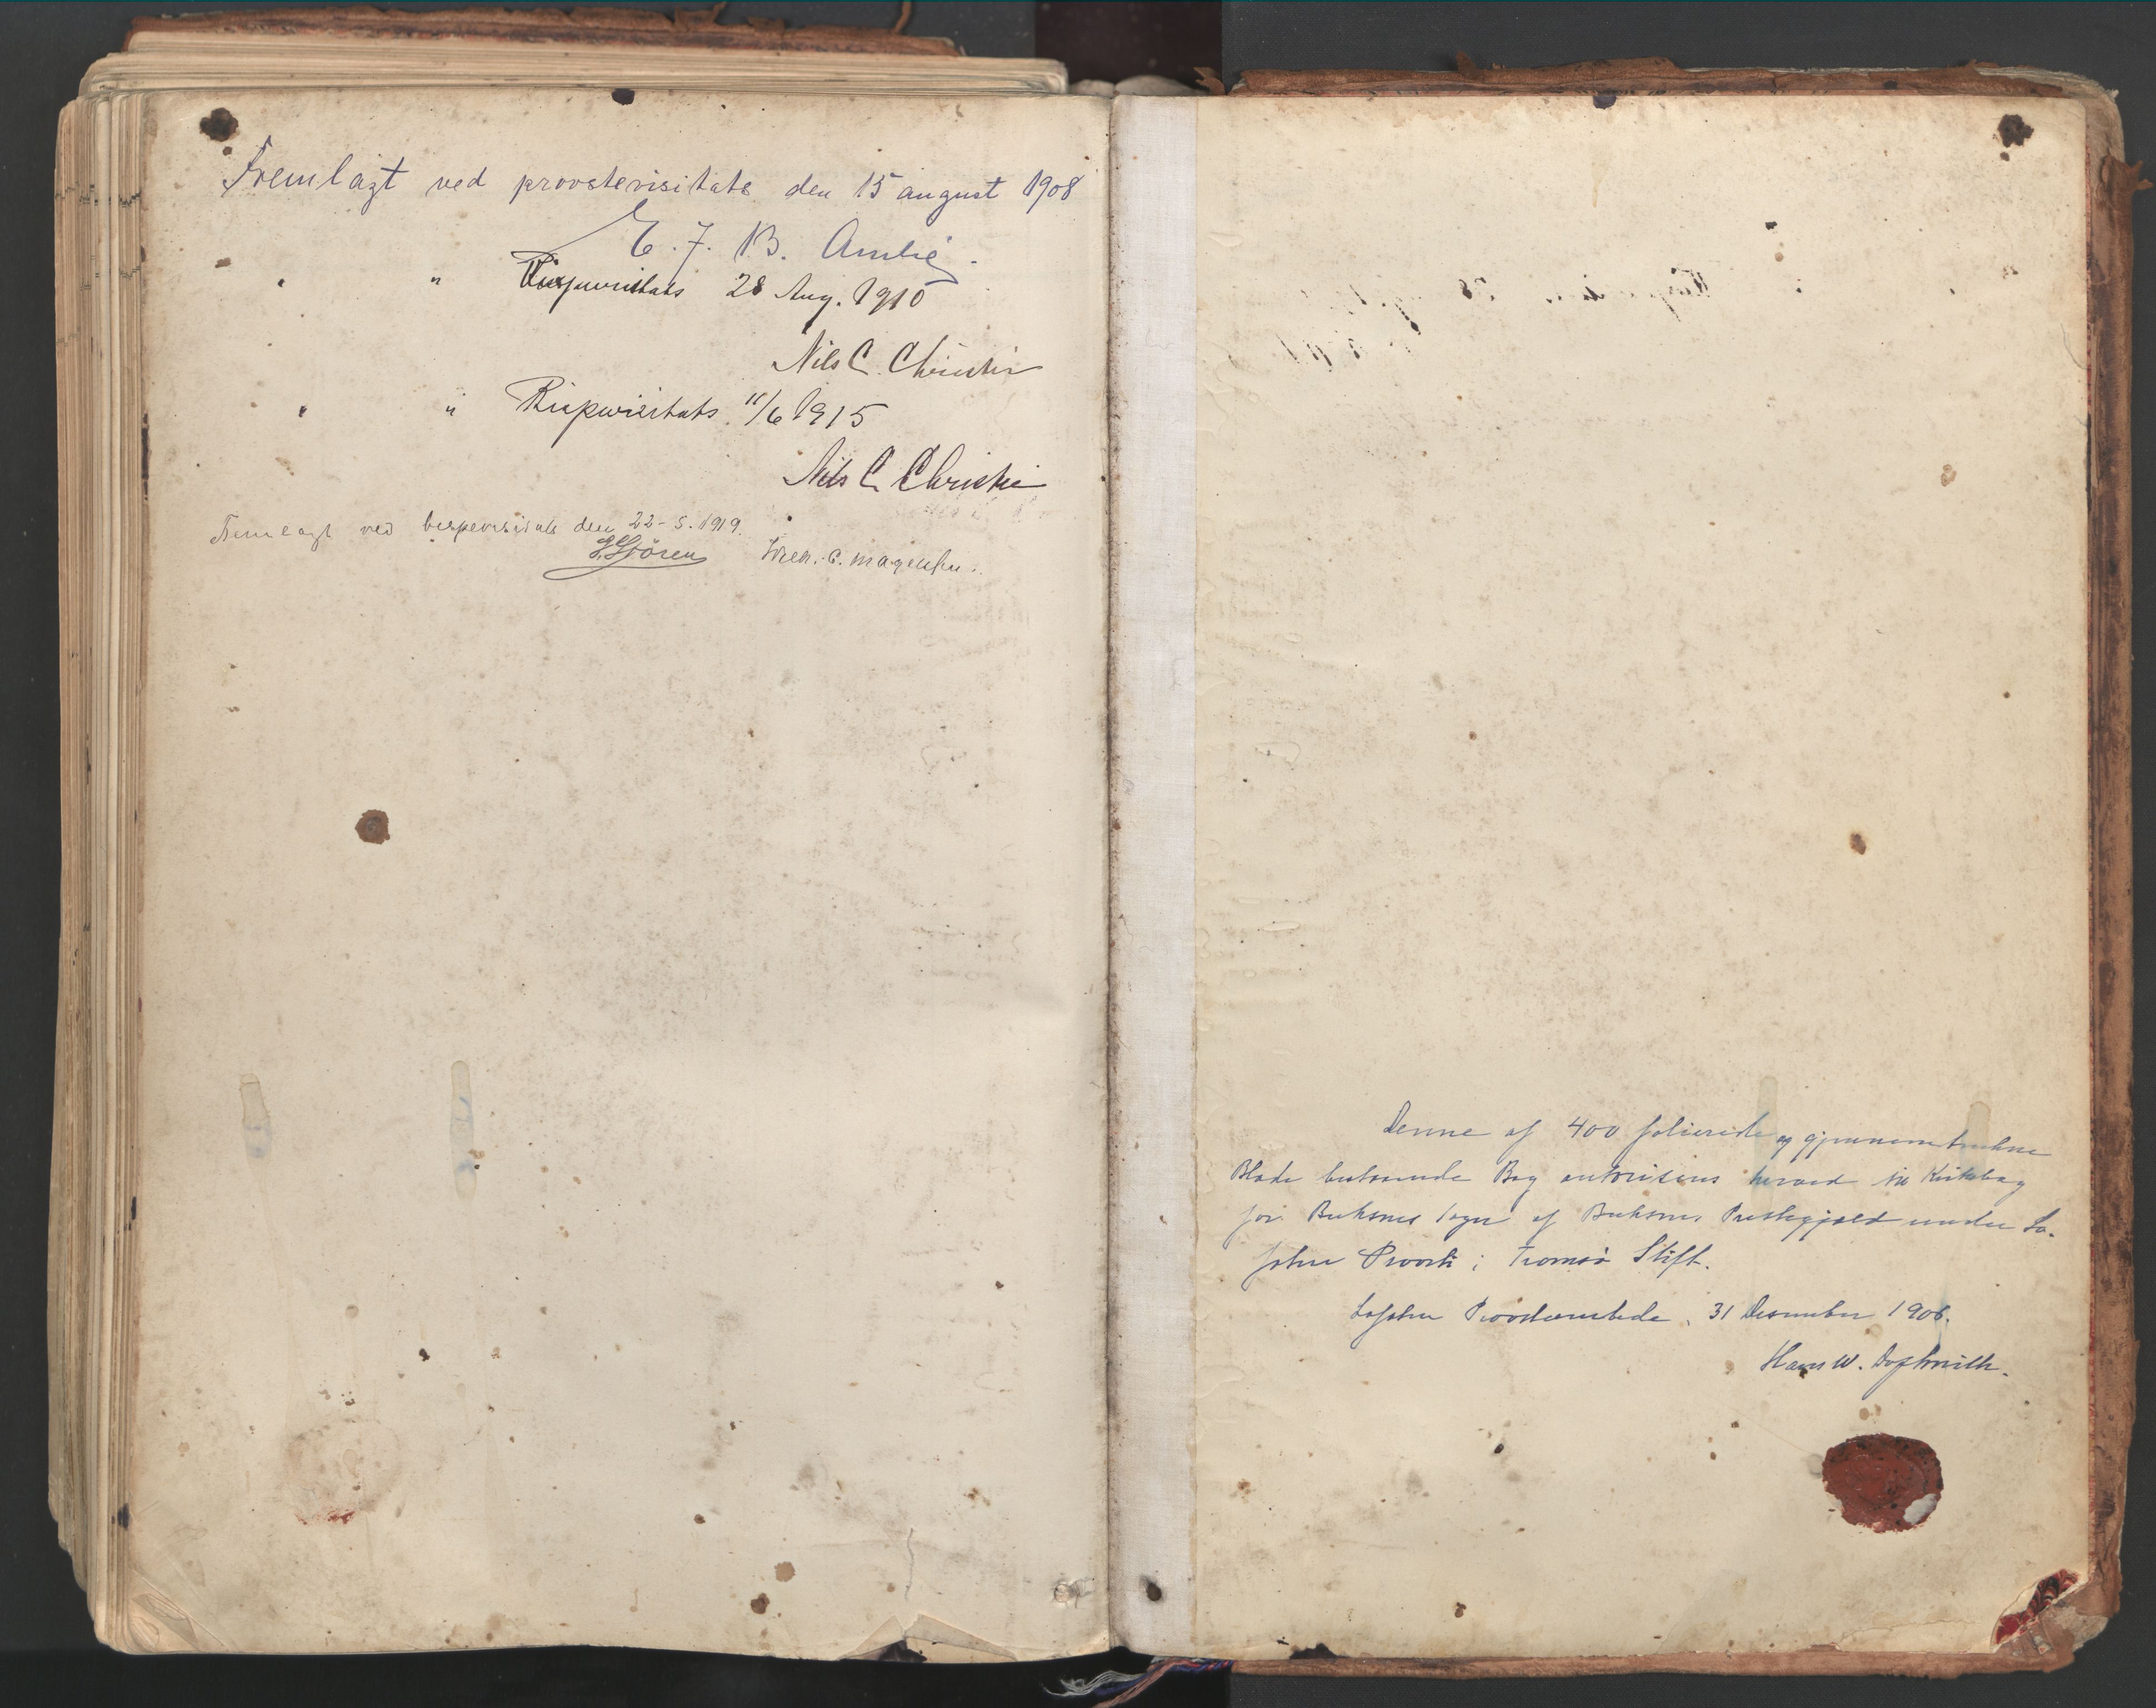 Fremlagt ved provstevisitats den 15 august 1908
E. F. B. Amlie.
" " Bispevisitats 28 Aug. 1910
Nils C. Christie
" " Bispevisitats 11/6 1915
Nils C Christie
Fremlagt ved bispevisitats den 22-5.1919.
Støren
Denne af 400 folierede og gjennemtrukne
Blade bestaaende Bog autoriseres herved til Kirkebog
for Buksnes Sogn af Buksnes Prestegjæld under Lo-
foten Provsti i Tromsø Stift.
Lofoten Provsteembede, 31 Desember 1906.
Hans W.